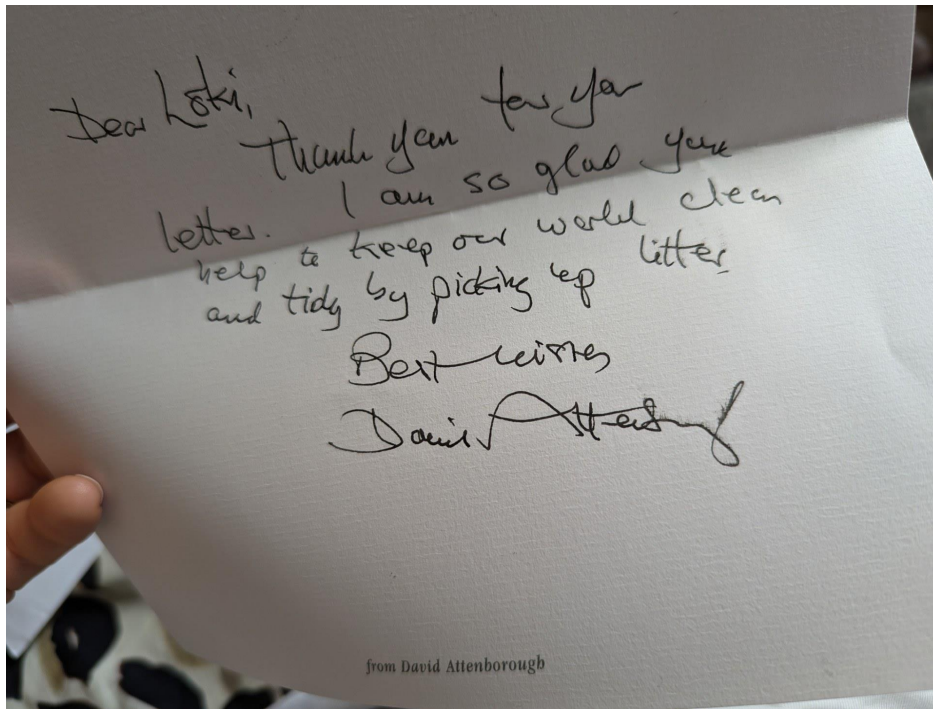 Dear Loki,
Thank you for your
letter. I am so glad you
help to keep our world clean
and tidy by picking up litter
Best wishes
David Attenborough
from David Attenborough